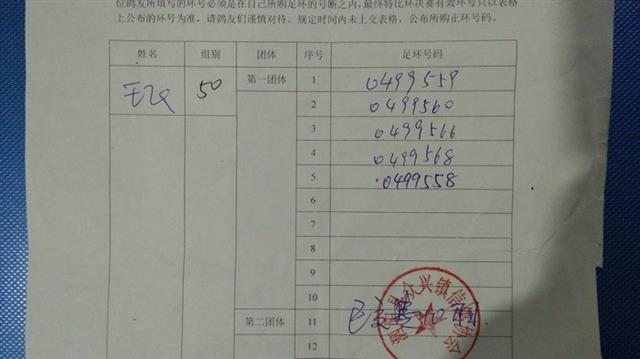 位鸽友所填写的环号必须是在自己所购足环的号断之内,最终特比环决赛有效环号只以表格
上公布的环号为准,请鸽友们谨慎对待。规定时间内未上交表格,公布所购正环号码。
姓名 组别 团体 序号 足环号码
50 第一团体 1 0499559
2 0499560
3 0499566
4 0499568
5 0499558
6
7
8
9
10
第二团体 11
12
泗 县众兴镇信鸽 会